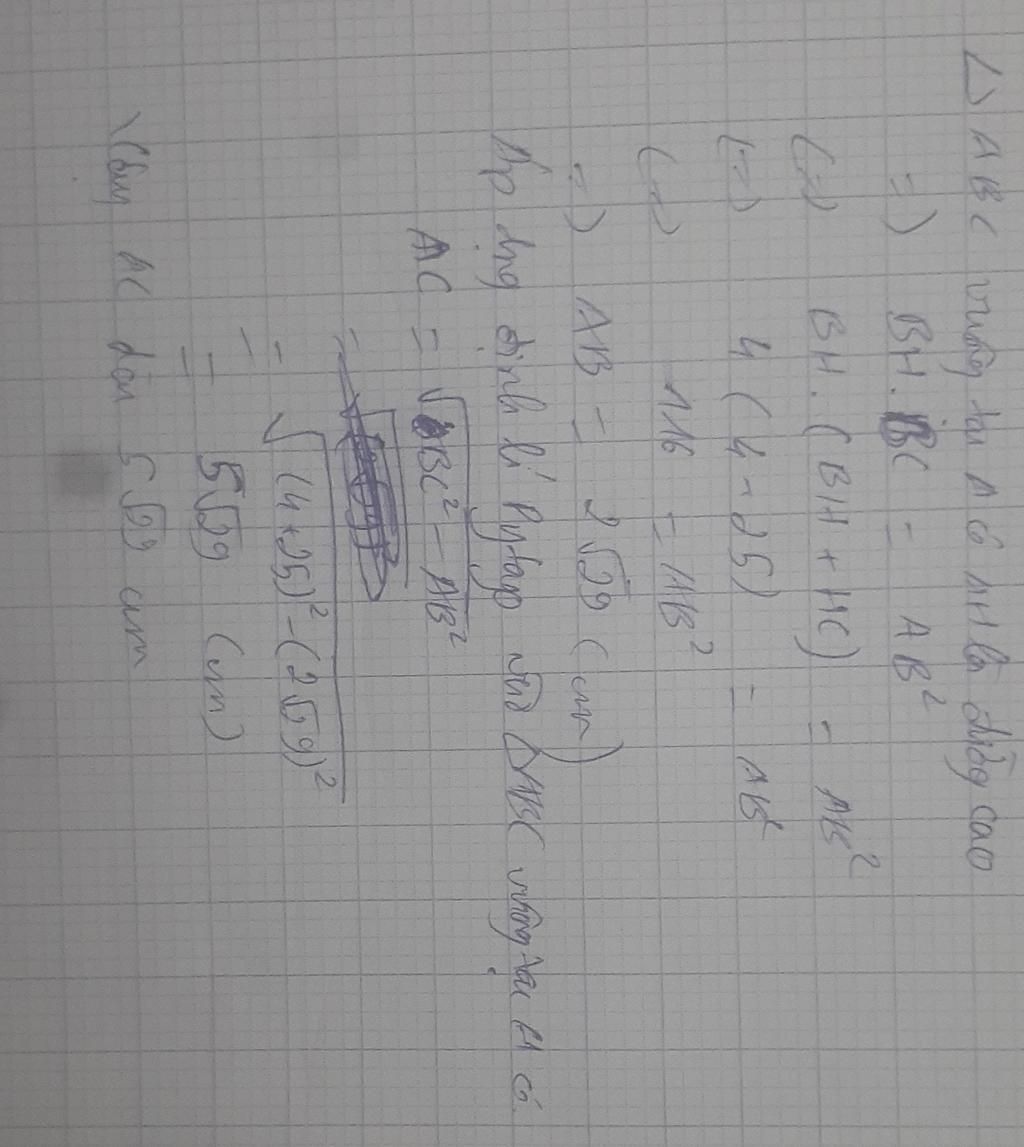 △ABC vuông tại A có AH là đường cao
=) BH.BC = AB²
(=) BH.(BH + HC) = AB²
(=) 4(4+25) = AB²
(=) 116 = AB²
=) AB = 2√29 (cm)
Áp dụng định lí Pytago với △ABC vuông tại A có
AC = √BC² - AB²
= √(4+25)² - (2√29)²
= 5√29 (cm)
Vậy AC dài 5√29 cm